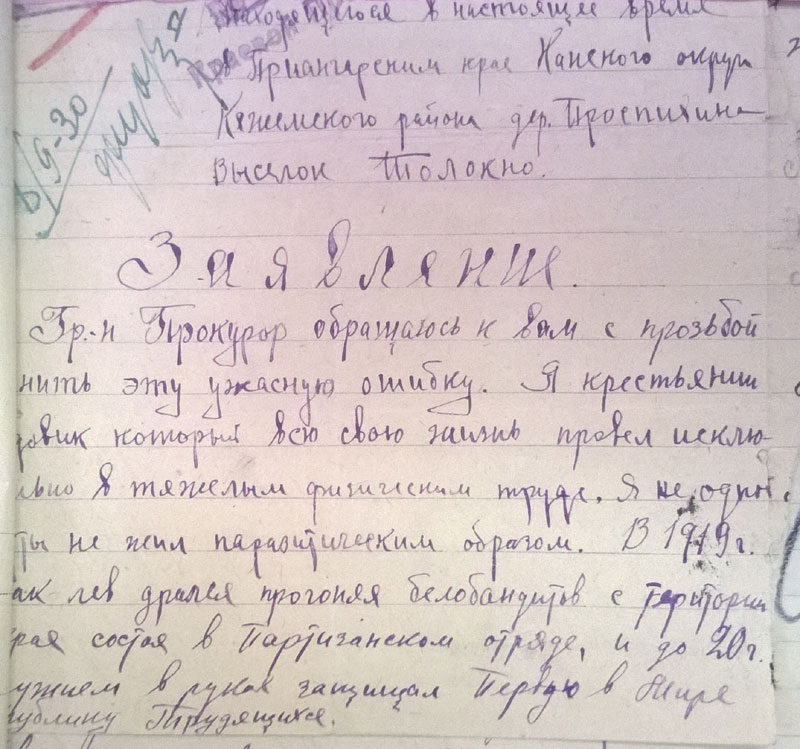 находящегося в настоящее время
в Приангирским крае Канского округа
Кежемского района дер. Проспихина
Выселок Толокно.
8/9-30
Заявление.
Гр.-н Прокурор обращаюсь к вам с прозьбой
нить эту ужасную ошибку. Я крестьянин
довик который всю свою жизнь провел исклю-
льно в тяжелым физическим труде. Я не одны
ты не жил паразитическим образом. В 1919 г.
ак лев дрался прогоняя белобандитов с територии
рая состоя в Партизанском отряде, и до 20 г.
ужием в руках защищал Первую в Мире
ублику Трудящихся.